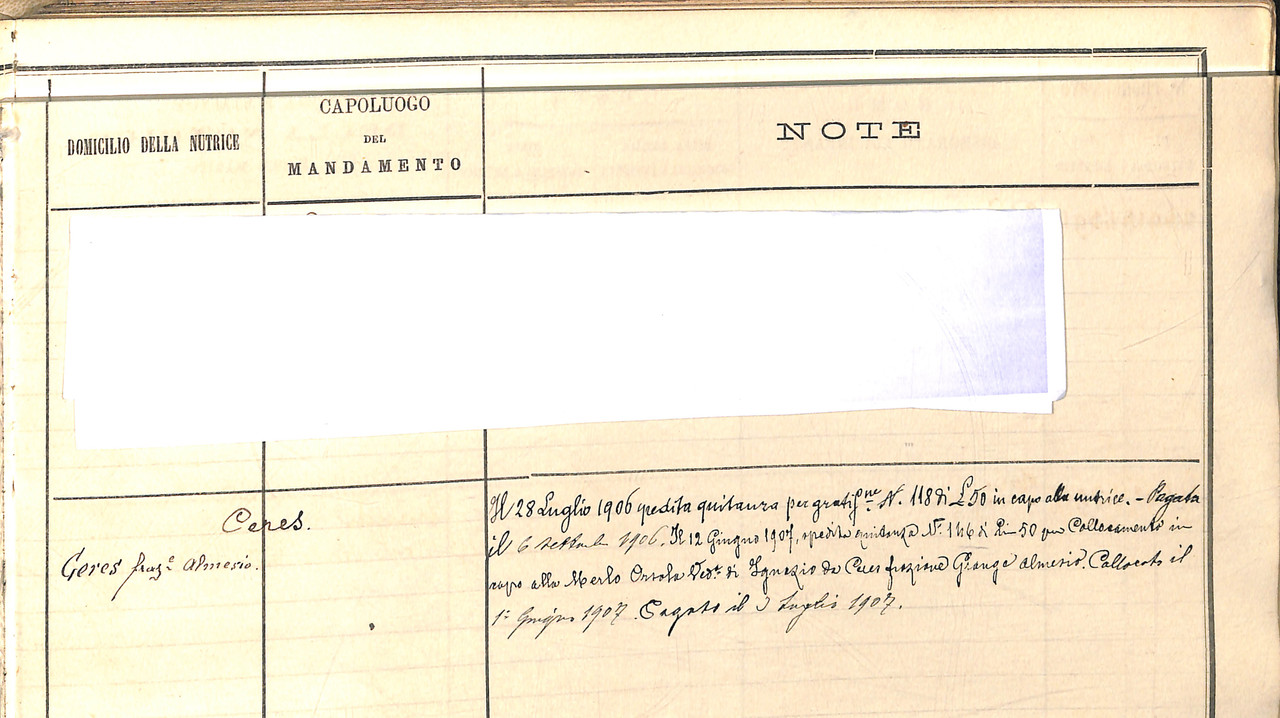 DOMICILIO DELLA NUTRICE
CAPOLUOGO
DEL
MANDAMENTO
NOTE
Ceres.
Ceres fraz.e Almesio.
Il 28 Luglio 1906 spedita quitanza per gratif.ne N. 118 di £ 50 in capo alla nutrice. - Pagata
il 6 settembre 1906. Il 12 Giugno 1907, spedita quitanza N. 146 di Lire 50 per Collocamento in
capo alla Merlo Orsola Ved.a di Ignazio da Ceres frazione Grange Almesio. Collocato il
1° Giugno 1907. Pagato il 3 Luglio 1907.